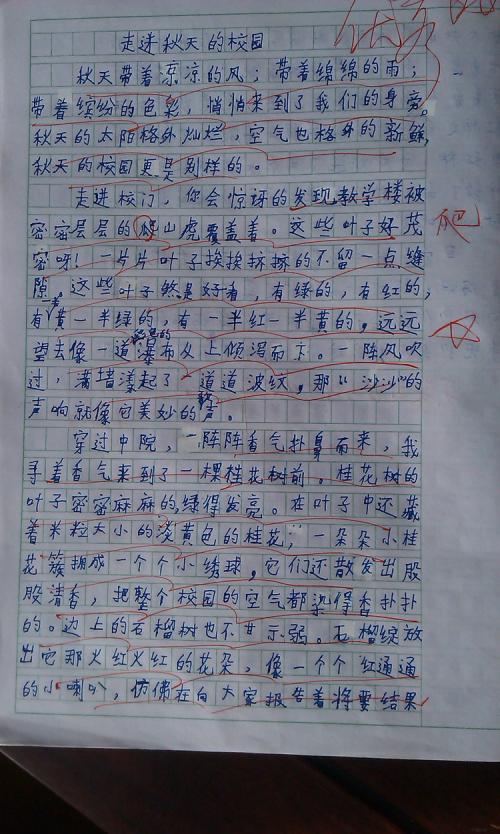 优秀
走进秋天的校园
秋天带着凉凉的风；带着绵绵的雨；
带着缤纷的色彩，悄悄来到了我们的身旁。
秋天的太阳格外灿烂，空气也格外的新鲜，
秋天的校园更是别样的。
走进校门，你会惊讶的发现教学楼被
密密层层的爬山虎覆盖着。这些叶子好茂
爬
密呀！一片片叶子挨挨挤挤的不留一点缝
隙，这些叶子煞是好看，有绿的，有红的，
有一半黄一半绿的，有一半红一半黄的，远远
望去像一道彩色的瀑布从上倾泻而下。一阵风吹
过，满墙漾起了一道道波纹，那“沙沙”的
声响就像它美妙的歌声。
穿过中院，一阵阵香气扑身而来，我
寻着香气来到了一棵桂花树前。桂花树的
叶子密密麻麻的，绿得发亮。在叶子中还藏
着米粒大小的淡黄色的桂花；一朵朵小桂
花簇拥成一个个小绣球，它们还散发出股
股清香，把整个校园的空气都染得香扑扑
的。边上的石榴树也不甘示弱。石榴绽放
出它那火红火红的花朵，像一个个红通通
的小喇叭，仿佛在向大家报告着将要结果